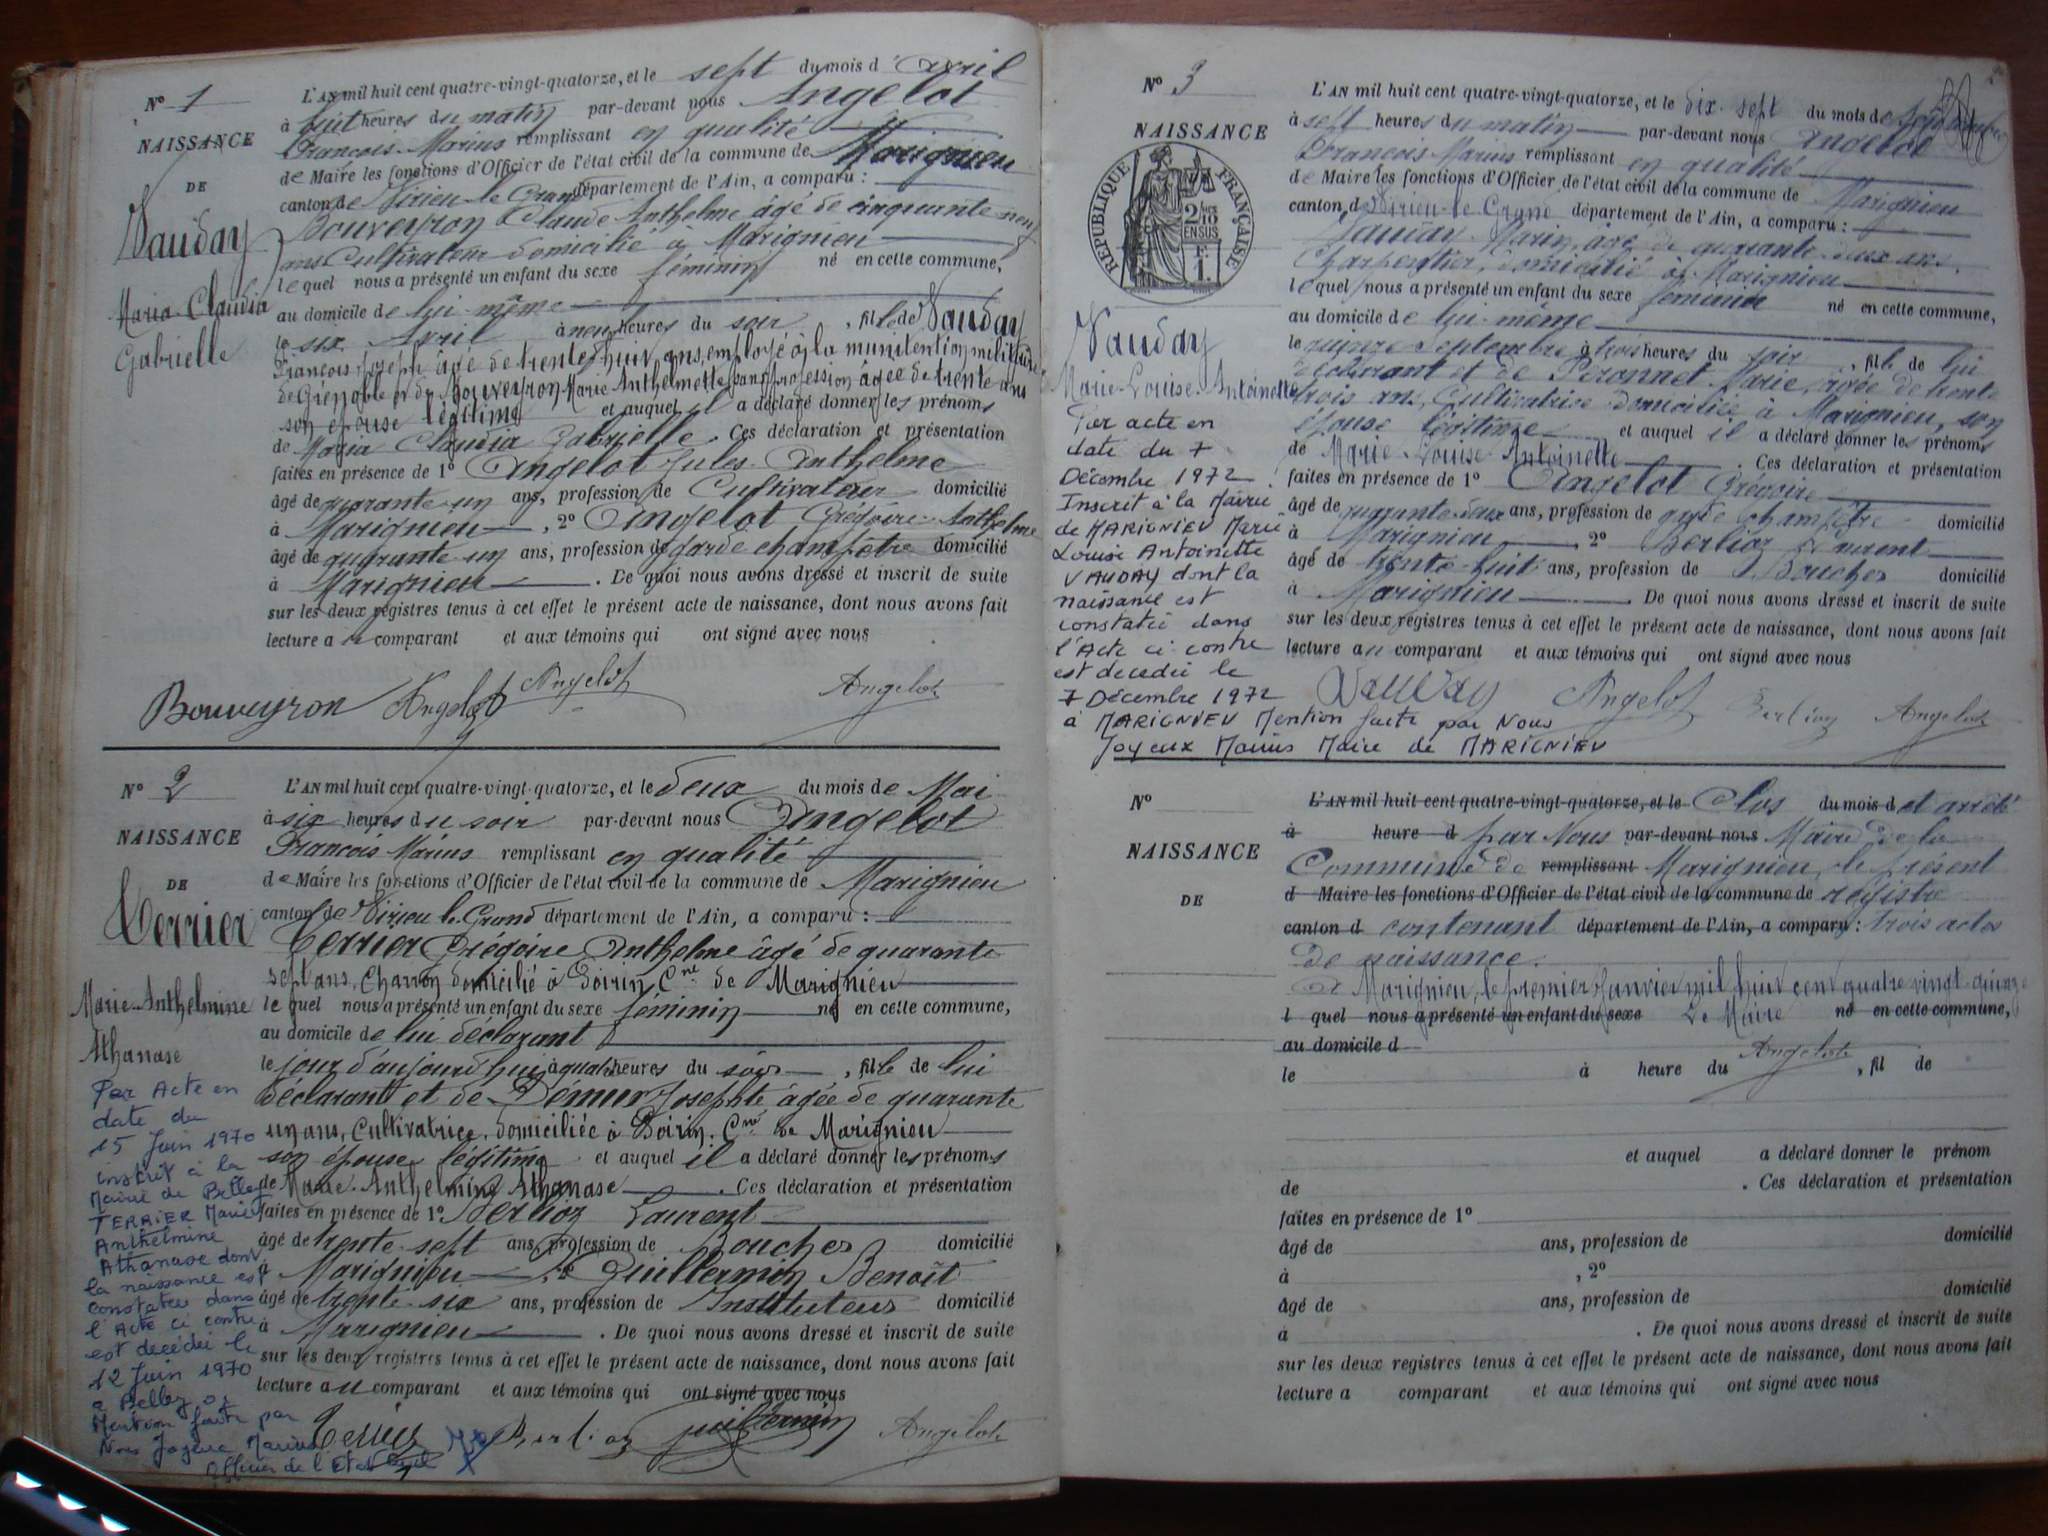 N° 1
NAISSANCE
DE
Vauday
Maria Claudia
Gabrielle
L'AN mil huit cent quatre-vingt-quatorze, et le sept du mois d'Avril
à huit heures du matin par-devant nous Angelot
François Marius remplissant en qualité
de Maire les fonctions d'Officier de l'état civil de la commune de Marignieu
canton de Virieu le Grand département de l'Ain, a comparu :
Bouveyron Claude Anthelme âgé de cinquante neuf
ans Cultivateur domicilié à Marignieu
lequel nous a présenté un enfant du sexe féminin né en cette commune,
au domicile de lui même
le six Avril à neuf heures du soir, fille de Vauday
François Joseph âgé de trente huit ans, employé à la manutention militaire
de Grenoble et de Bouveyron Marie Anthelmette sans profession âgée de trente ans
son épouse légitime et auquel il a déclaré donner les prénoms
de Maria Claudia Gabrielle. Ces déclaration et présentation
faites en présence de 1° Angelot Jules Anthelme
âgé de quarante un ans, profession de Cultivateur domicilié
à Marignieu, 2° Angelot Grégoire Anthelme
âgé de quarante un ans, profession de garde champêtre domicilié
à Marignieu. De quoi nous avons dressé et inscrit de suite
sur les deux registres tenus à cet effet le présent acte de naissance, dont nous avons fait
lecture au comparant et aux témoins qui ont signé avec nous
Bouveyron Angelot Angelot Angelot
N° 2
NAISSANCE
DE
Terrier
Marie-Anthelmine
Athanase
Par Acte en
date du
15 Juin 1970
inscrit à la
Mairie de Belley
TERRIER Marie
Anthelmine
Athanase dont
la naissance est
constatée dans
l'Acte ci contre
est decédée le
12 Juin 1970
a Belley 01
Mention faite par
Nous Joyeux Marius
Officier de l'Etat Civil
L'AN mil huit cent quatre-vingt-quatorze, et le deux du mois de Mai
à six heures du soir par-devant nous Angelot
François Marius remplissant en qualité
de Maire les fonctions d'Officier de l'état civil de la commune de Marignieu
canton de Virieu le Grand département de l'Ain, a comparu :
Terrier Grégoire Anthelme âgé de quarante
sept ans, Charron domicilié à Poirin Cne de Marignieu
lequel nous a présenté un enfant du sexe féminin né en cette commune,
au domicile de lui déclarant
le jour d'aujourd'hui à quatre heures du soir, fille de lui
déclarant et de Démur Josephte âgée de quarante
un ans, Cultivatrice, domiciliée à Poirin, Cne de Marignieu
son épouse légitime et auquel il a déclaré donner les prénoms
de Marie-Anthelmine Athanase. Ces déclaration et présentation
faites en présence de 1° Berlioz Laurent
âgé de trente-sept ans, profession de Boucher domicilié
à Marignieu, 2° Guillermin Benoît
âgé de trente-six ans, profession de Instituteur domicilié
à Marignieu. De quoi nous avons dressé et inscrit de suite
sur les deux registres tenus à cet effet le présent acte de naissance, dont nous avons fait
lecture au comparant et aux témoins qui ont signé avec nous
Terrier Berlioz Guillermin Angelot
N° 3
NAISSANCE
RÉPUBLIQUE FRANÇAISE
2/10 EN SUS
F.
1.
Vauday
Marie-Louise-Antoinette
Par acte en
date du 7
Décembre 1972
Inscrit à la Mairie
de MARIGNIEU Marie
Louise Antoinette
VAUDAY dont la
naissance est
constatée dans
l'Acte ci contre
est decedée le
7 Décembre 1972
à MARIGNIEU Mention faite par Nous
Joyeux Marius Maire de MARIGNIEU
L'AN mil huit cent quatre-vingt-quatorze, et le dix-sept du mois de Septembre
à sept heures du matin par-devant nous Angelot
François Marius remplissant en qualité
de Maire les fonctions d'Officier de l'état civil de la commune de Marignieu
canton de Virieu-le-Grand département de l'Ain, a comparu :
Vauday Marin, âgé de quarante-deux ans,
Charpentier, domicilié à Marignieu
lequel nous a présenté un enfant du sexe féminin né en cette commune,
au domicile de lui-même
le quinze Septembre à trois heures du soir, fille de lui
déclarant et de Peronnet Marie, âgée de trente
trois ans, Cultivatrice domiciliée à Marignieu, son
épouse légitime et auquel il a déclaré donner les prénoms
de Marie-Louise-Antoinette. Ces déclaration et présentation
faites en présence de 1° Angelot Grégoire
âgé de quarante-deux ans, profession de garde champêtre domicilié
à Marignieu, 2° Berlioz Laurent
âgé de trente-huit ans, profession de Boucher domicilié
à Marignieu. De quoi nous avons dressé et inscrit de suite
sur les deux registres tenus à cet effet le présent acte de naissance, dont nous avons fait
lecture au comparant et aux témoins qui ont signé avec nous
Vauday Angelot Berlioz Angelot
N°
NAISSANCE
DE
L'AN mil huit cent quatre-vingt-quatorze, et le Clos du mois d et arrêté
à heure d par Nous par-devant nous Maire de la
Commune de remplissant Marignieu, le présent
d Maire les fonctions d'Officier de l'état civil de la commune de registre
canton d contenant département de l'Ain, a comparu : trois actes
de naissance.
A Marignieu, le premier Janvier mil huit cent quatre vingt quinze
l quel nous a présenté un enfant du sexe Le Maire né en cette commune,
au domicile d Angelot
le à heure du , fil de
et auquel a déclaré donner le prénom
de . Ces déclaration et présentation
faites en présence de 1°
âgé de ans, profession de domicilié
à , 2°
âgé de ans, profession de domicilié
à . De quoi nous avons dressé et inscrit de suite
sur les deux registres tenus à cet effet le présent acte de naissance, dont nous avons fait
lecture a comparant et aux témoins qui ont signé avec nous